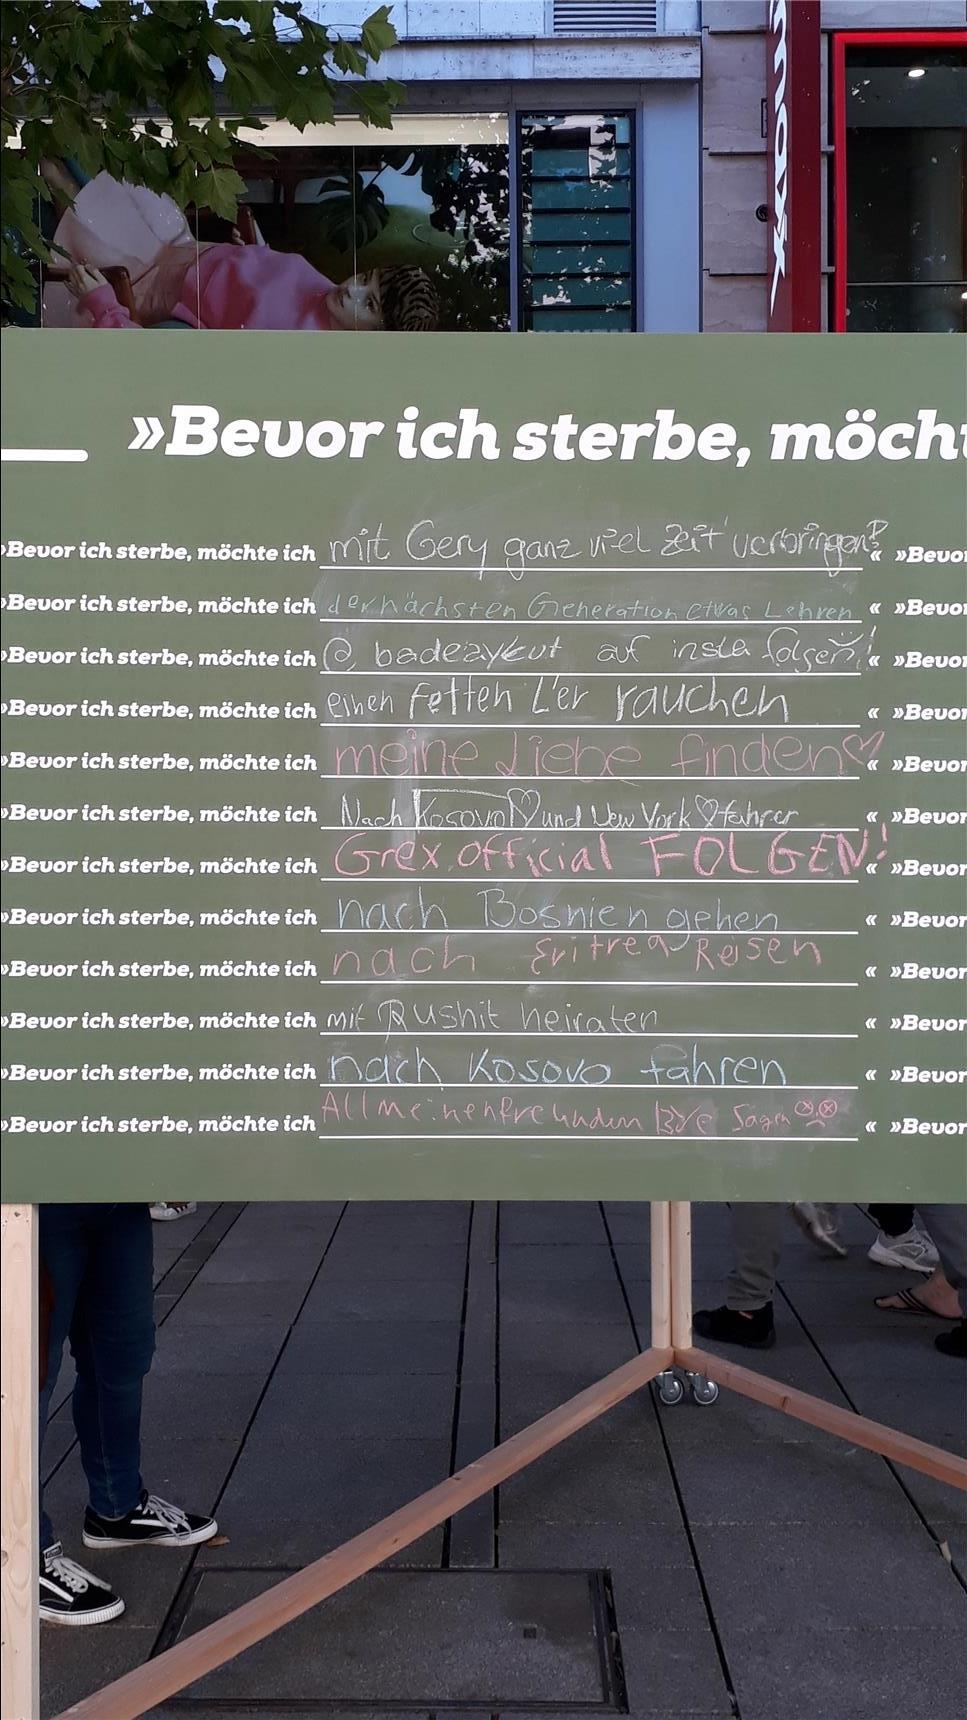 »Bevor ich sterbe, möcht
»Bevor ich sterbe, möchte ich mit Gery ganz viel Zeit verbringen? « »Bevor
»Bevor ich sterbe, möchte ich der nächsten Generation etwas Lehren « »Bevor
»Bevor ich sterbe, möchte ich @badezykut auf insta folgen! « »Bevor
»Bevor ich sterbe, möchte ich einen Fetten L'er rauchen « »Bevor
»Bevor ich sterbe, möchte ich meine Liebe finden♡ « »Bevor
»Bevor ich sterbe, möchte ich Nach Kosovo♡und New York♡fahrer « »Bevor
»Bevor ich sterbe, möchte ich Grex.official FOLGEN! « »Bevor
»Bevor ich sterbe, möchte ich nach Bosnien gehen « »Bevor
»Bevor ich sterbe, möchte ich nach Eritrea Reisen « »Bevor
»Bevor ich sterbe, möchte ich mit Rushit heiraten « »Bevor
»Bevor ich sterbe, möchte ich nach Kosovo fahren « »Bevor
»Bevor ich sterbe, möchte ich All meinen freunden BYE Sagen « »Bevor